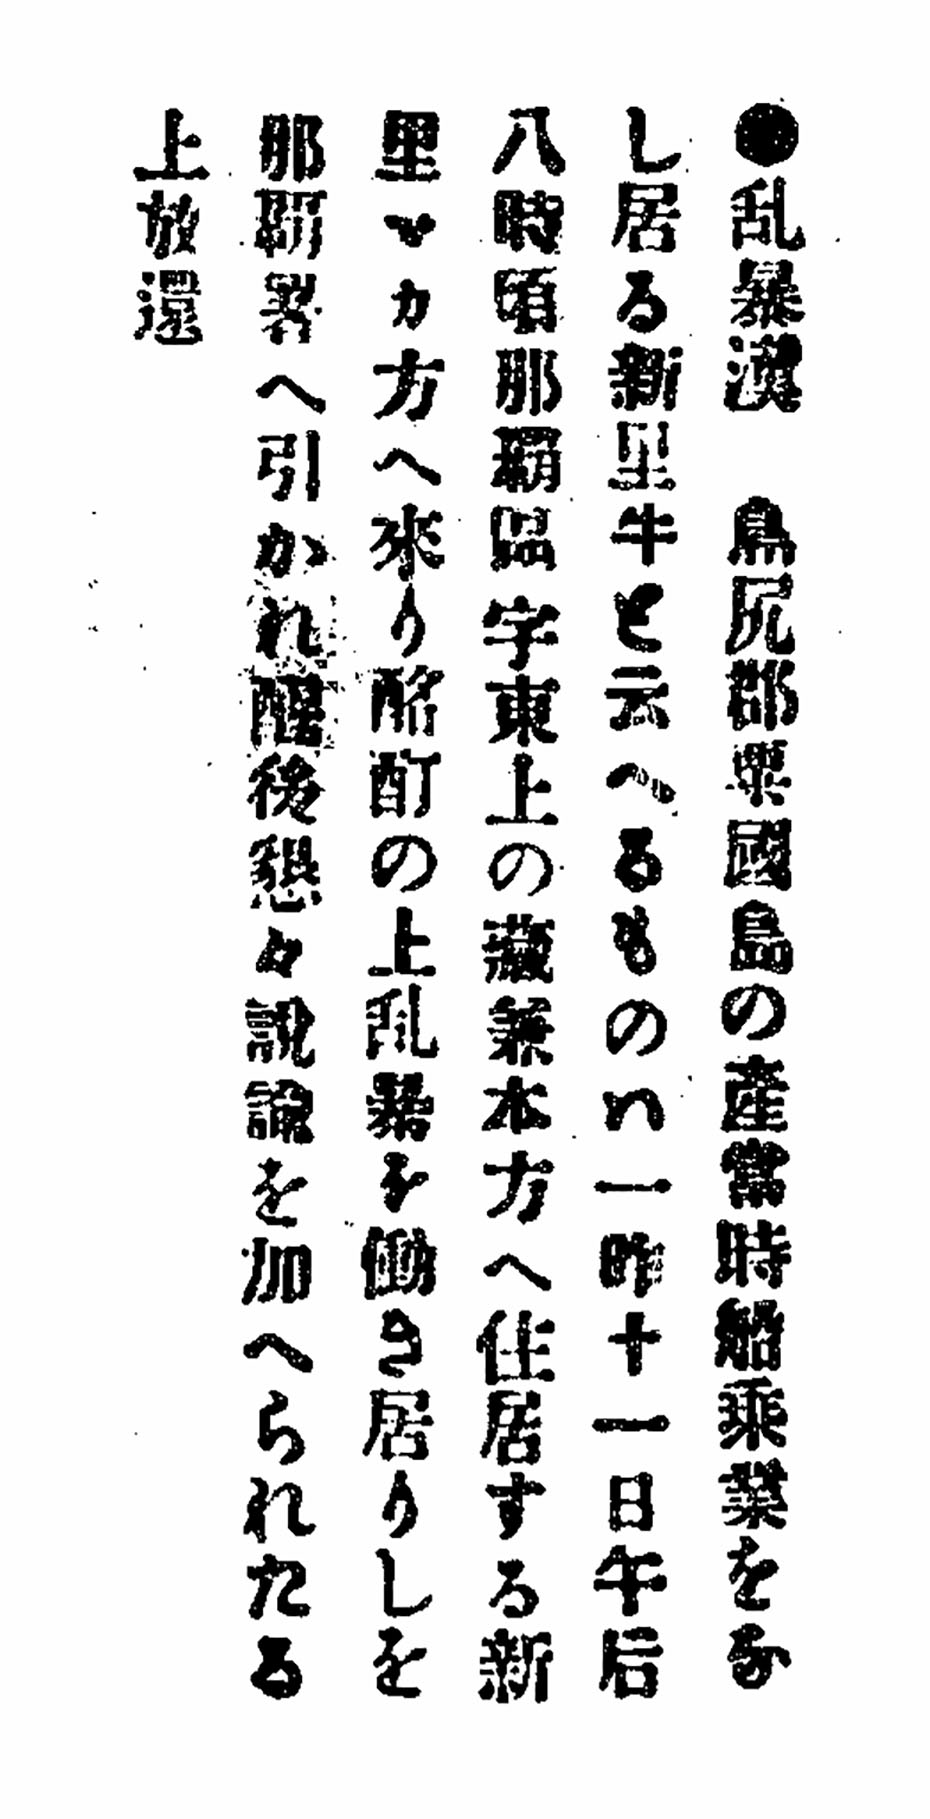 ●乱暴漢　島尻郡粟國島の產當時船乘業をな
し居る新里牛と云へるものハ一昨十一日午后
八時頃那覇區字東上の藏兼本方へ住居する新
里マカ方へ來り酩酊の上乱暴を働き居りしを
那覇署へ引かれ醒後懇々說諭を加へられたる
上放還